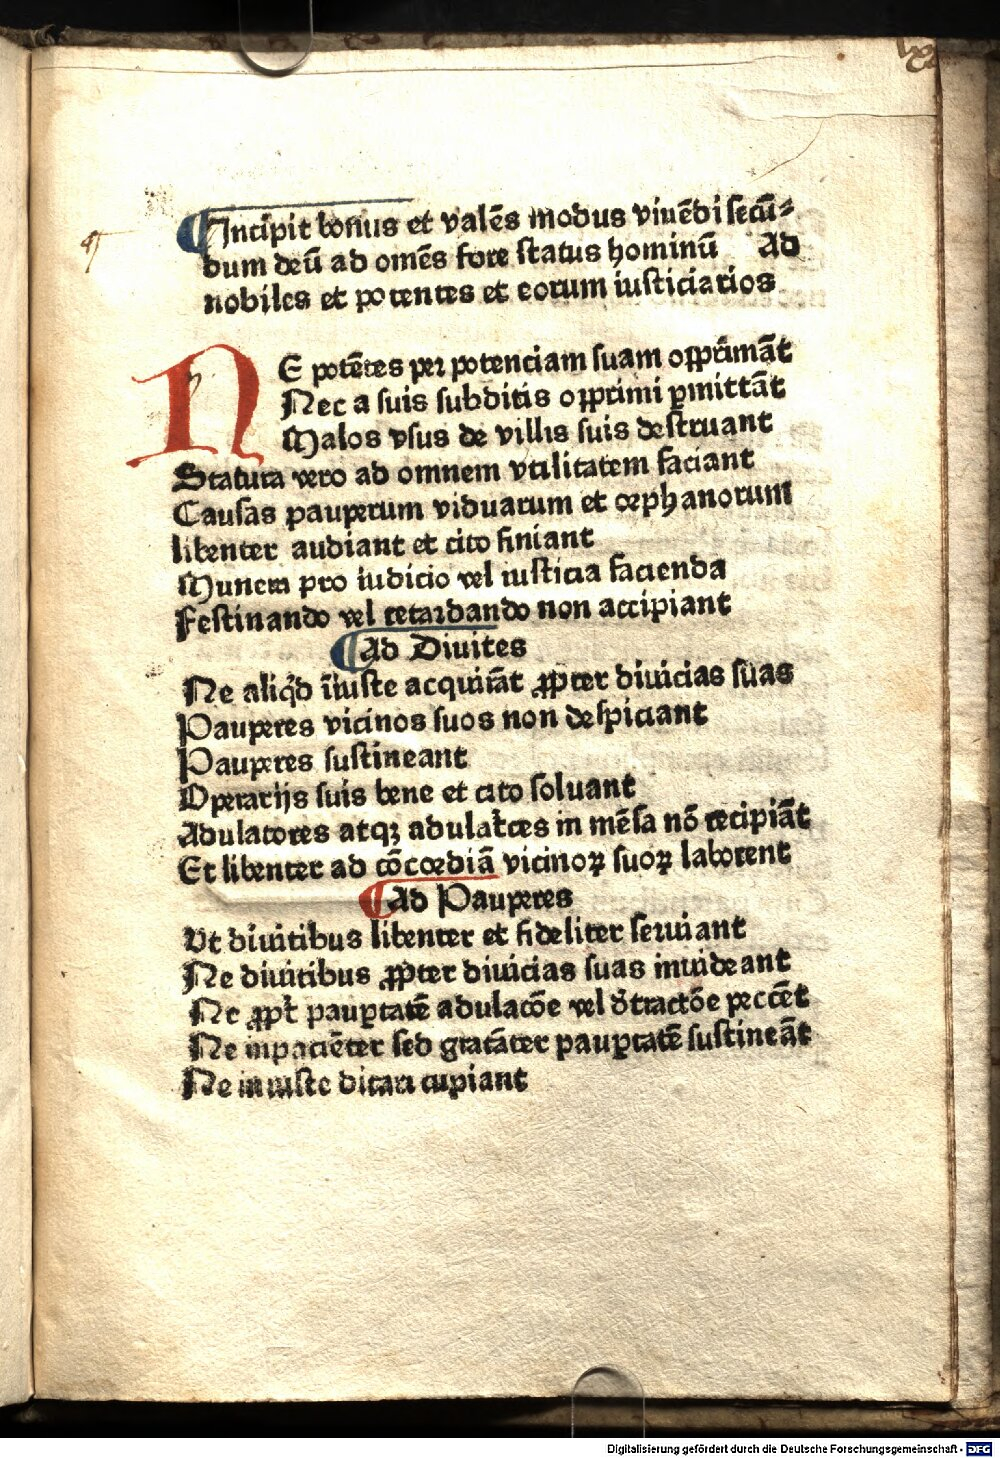 Incipit bonus et valēs modus viuēdi secū⸗
dum deū ad omēs fore status hominū Ad
nobiles et potentes et eorum iusticiarios
NE potētes per potenciam suam opprimāt
Nec a suis subditis opprimi ꝑmittāt
Malos vsus de villis suis destruant
Statuta vero ad omnem vtilitatem faciant
Causas pauperum viduarum et orphanorum
libenter audiant et cito finiant
Munera pro iudicio vel iusticia facienda
Festinando vel retardando non accipiant
Ad Diuites
Ne aliqd̕ īiuste acquirāt ꝓpter diuicias suas
Pauperes vicinos suos non despiciant
Pauperes sustineant
Operarijs suis bene et cito soluant
Adulatores atqꝫ adulat̕ces in mēsa nō recipiāt
Et libenter ad cōcordiā vicinoꝝ suoꝝ laborent
Ad Pauperes
Vt diuitibus libenter et fideliter seruiant
Ne diuitibus ꝓpter diuicias suas inuideant
Ne ꝓpt̕ pauꝑtatē adulacōe vel d̕tractōe peccēt
Ne inpaciēter sed gratāter pauꝑtatē sustineāt
Ne iniuste ditari cupiant
Digitalisierung gefördert durch die Deutsche Forschungsgemeinschaft - DFG